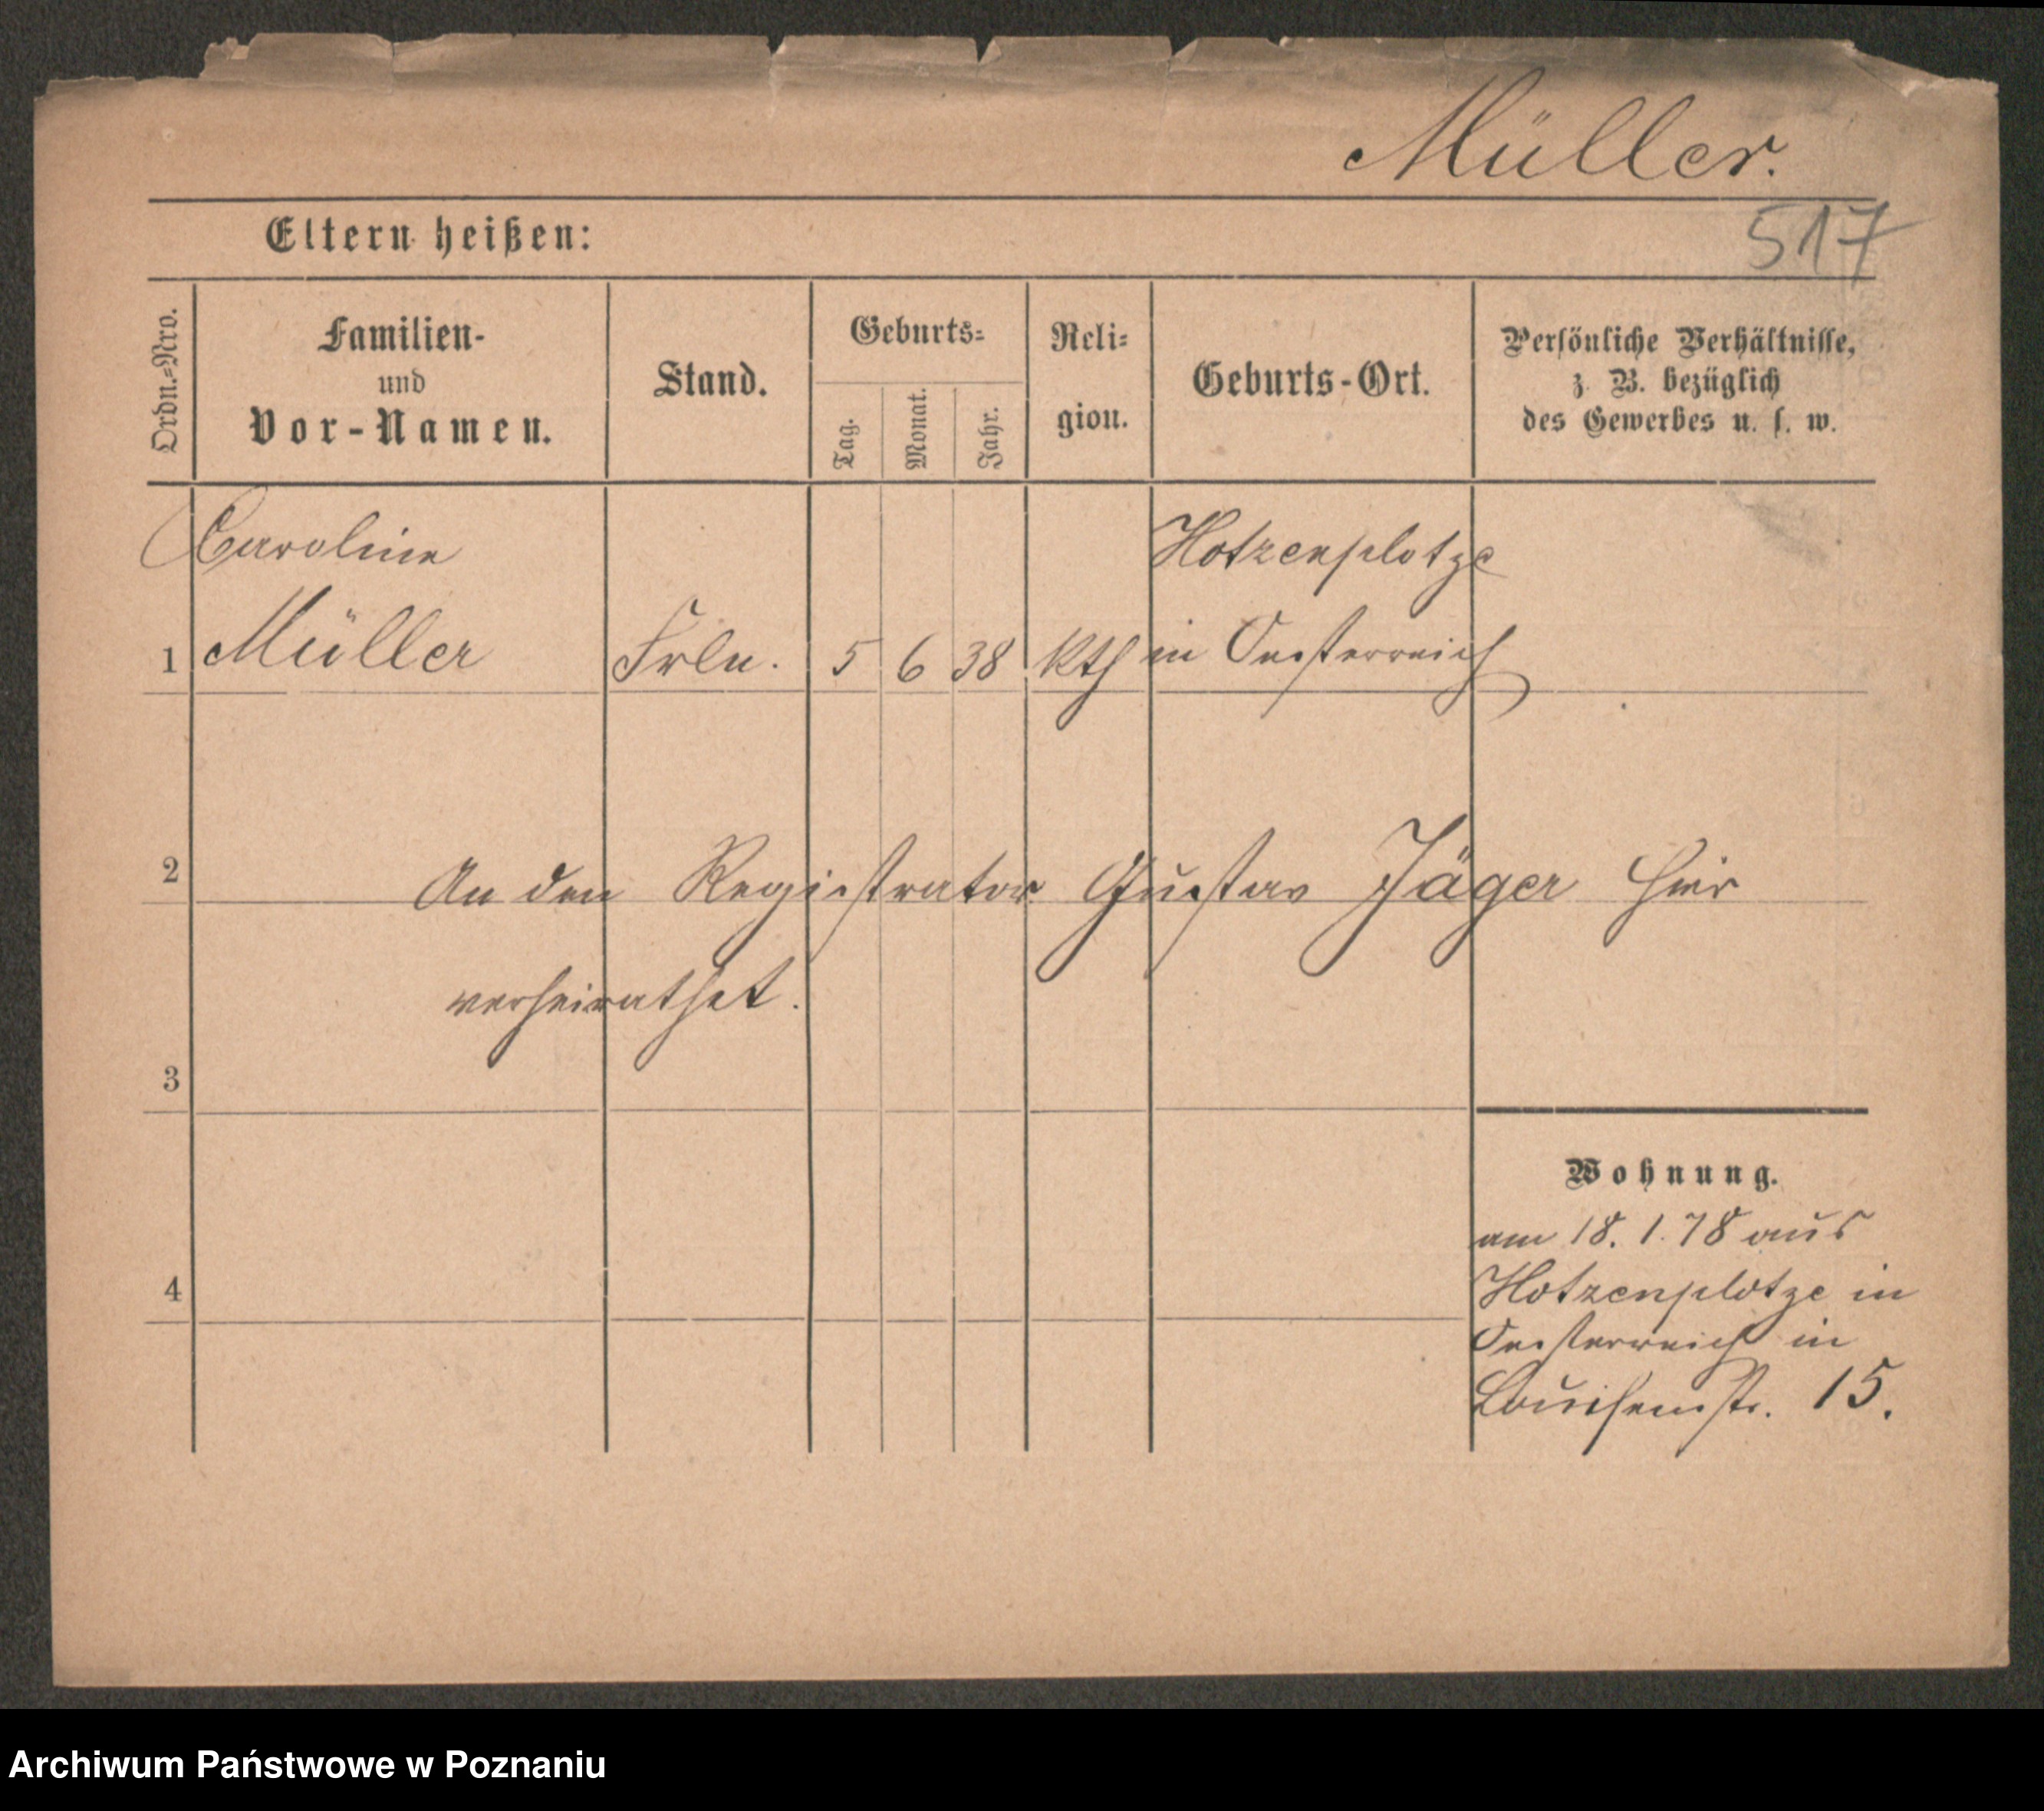 Müller.
517
Eltern heißen:
Ordn.=Nro.
Familien-
und
Vor-Namen.
Stand.
Geburts=
Tag.
Monat.
Jahr.
Reli=
gion.
Geburts-Ort.
Persönliche Verhältnisse,
z. B. bezüglich
des Gewerbes u. s. w.
Caroline Hotzenplotze
1 Müller Frln. 5 6 38 kth in Oesterreich
2 An den Registrator Gustav Jäger hier
verheirathet.
3
Wohnung.
am 18. 1. 78 aus
4 Hotzenplotze in
Oesterreich in
Louisenstr. 15.
Archiwum Państwowe w Poznaniu